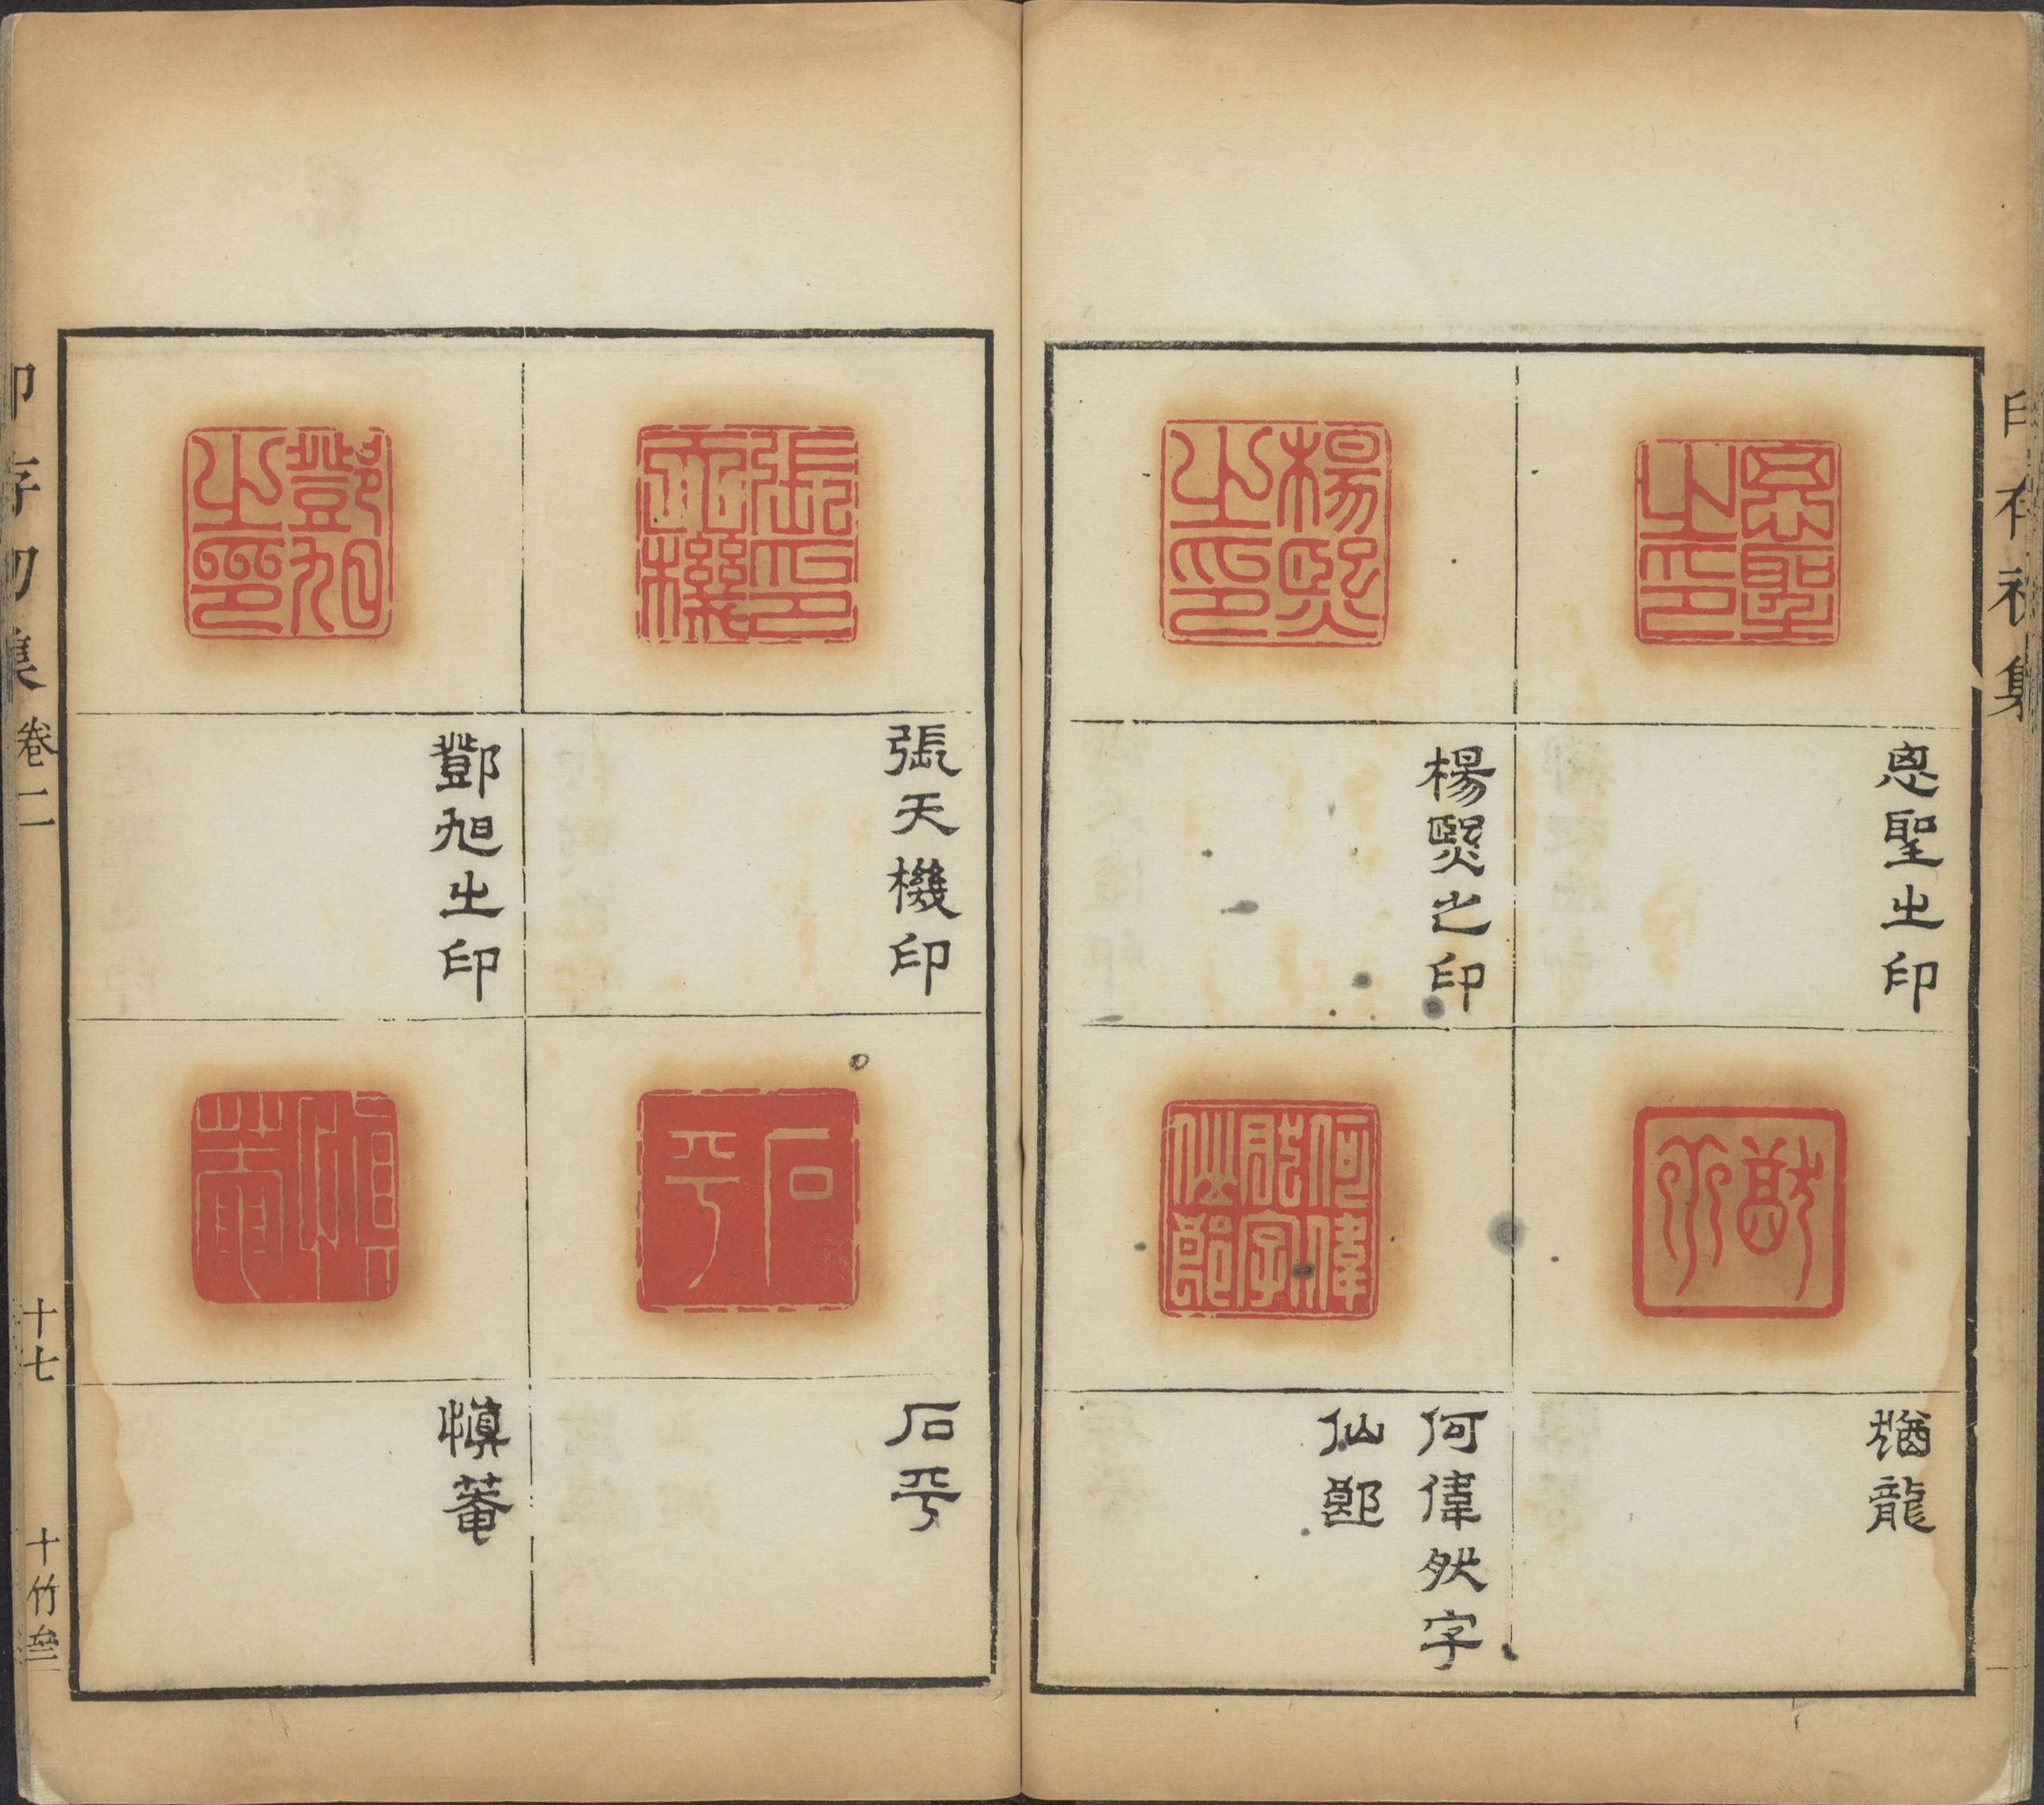 印存初集
恖聖㞢印
楊煚之印
猶龍
何偉然字
仙郎
張天機印
鄧旭㞢印
石平
慎菴
印存初集
卷二
十七
十竹